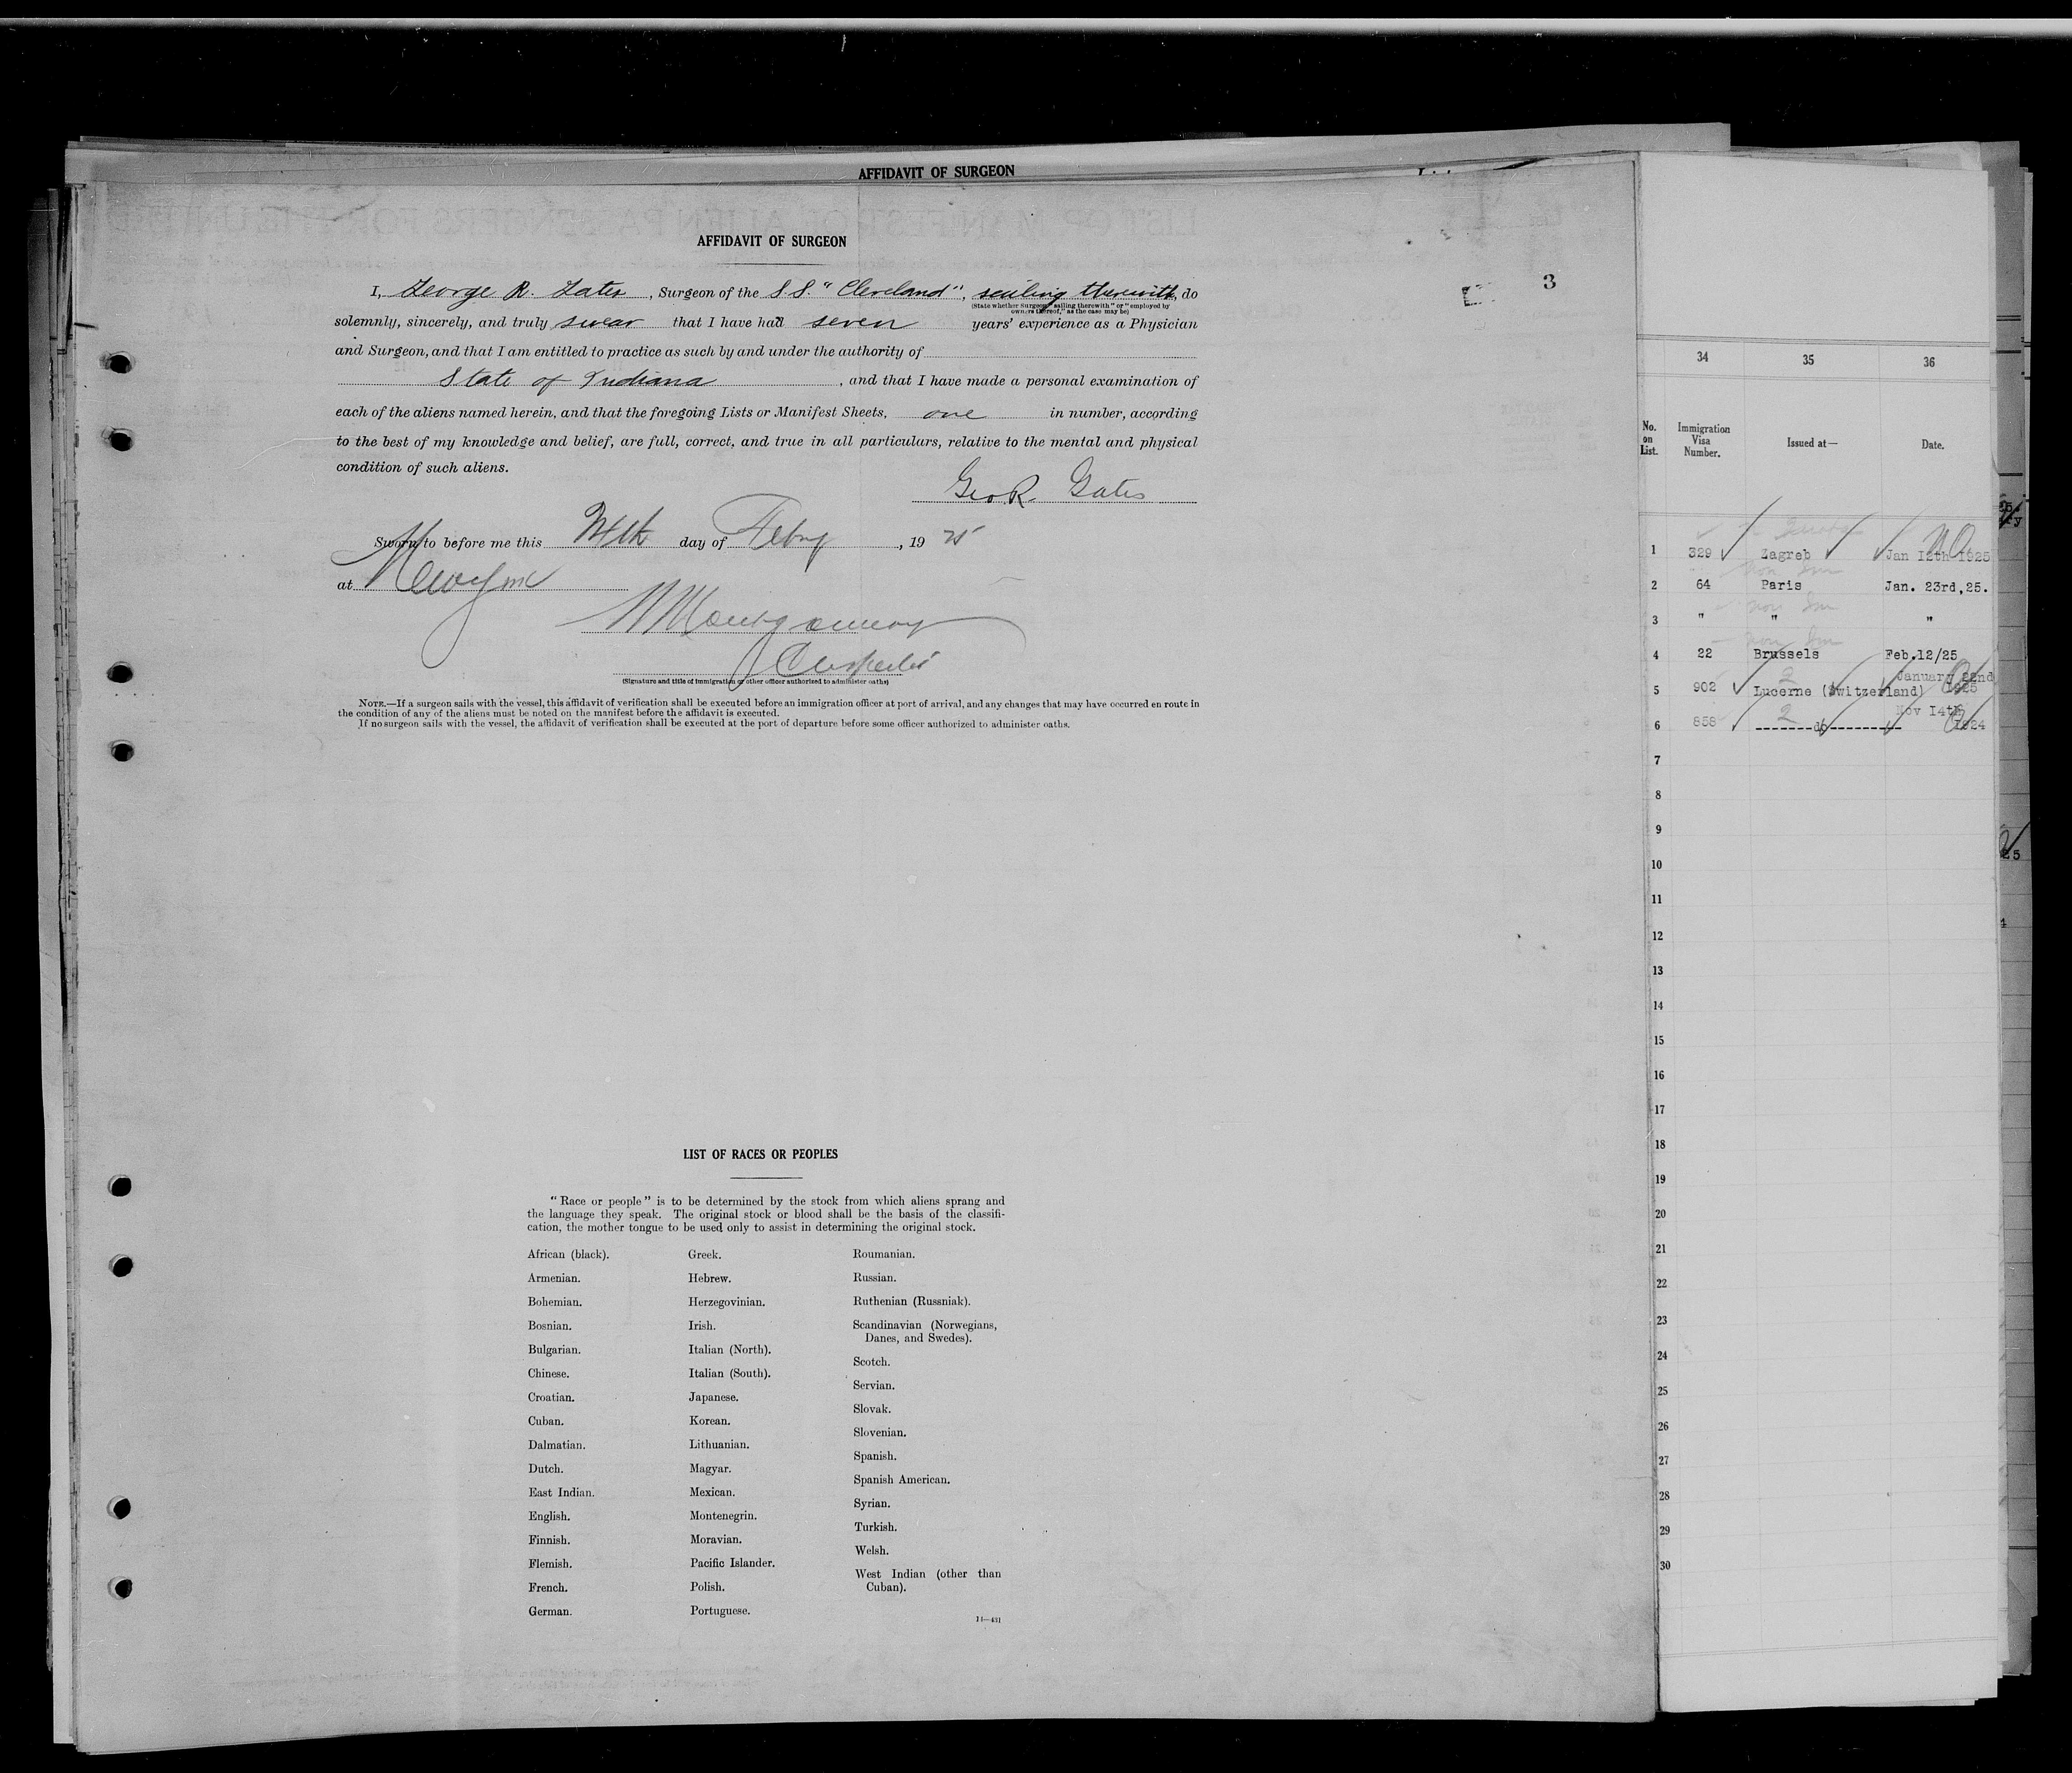 AFFIDAVIT OF SURGEON
AFFIDAVIT OF SURGEON
3
I, George R. Gates, Surgeon of the S.S. "Cleveland", sailing therewith, do
(State whether Surgeon "sailing therewith" or "employed by
owners thereof," as the case may be)
solemnly, sincerely, and truly swear that I have had seven years' experience as a Physician
and Surgeon, and that I am entitled to practice as such by and under the authority of
State of Indiana, and that I have made a personal examination of
each of the aliens named herein, and that the foregoing Lists or Manifest Sheets, one in number, according
to the best of my knowledge and belief, are full, correct, and true in all particulars, relative to the mental and physical
condition of such aliens.
Geo R. Gates
Sworn to before me this day of Febry, 1925
at New York
Montgomery
(Signature and title of immigration or other officer authorized to administer oaths)
NOTE.—If a surgeon sails with the vessel, this affidavit of verification shall be executed before an immigration officer at port of arrival, and any changes that may have occurred en route in
the condition of any of the aliens must be noted on the manifest before the affidavit is executed.
If no surgeon sails with the vessel, the affidavit of verification shall be executed at the port of departure before some officer authorized to administer oaths.
LIST OF RACES OR PEOPLES
"Race or people" is to be determined by the stock from which aliens sprang and
the language they speak. The original stock or blood shall be the basis of the classifi-
cation, the mother tongue to be used only to assist in determining the original stock.
African (black).
Armenian.
Bohemian.
Bosnian.
Bulgarian.
Chinese.
Croatian.
Cuban.
Dalmatian.
Dutch.
East Indian.
English.
Finnish.
Flemish.
French.
German.
Greek.
Hebrew.
Herzegovinian.
Irish.
Italian (North).
Italian (South).
Japanese.
Korean.
Lithuanian.
Magyar.
Mexican.
Montenegrin.
Moravian.
Pacific Islander.
Polish.
Portuguese.
Roumanian.
Russian.
Ruthenian (Russniak).
Scandinavian (Norwegians,
Danes, and Swedes).
Scotch.
Servian.
Slovak.
Slovenian.
Spanish.
Spanish American.
Syrian.
Turkish.
Welsh.
West Indian (other than
Cuban).
14—431
34 35 36
No. on List. Immigration Visa Number. Issued at— Date.
1 329 Zagreb Jan 12th 1925
2 64 Paris Jan. 23rd,25.
3 " " "
4 22 Brussels Feb.12/25
5 902 Lucerne (Switzerland) January 22nd 1925
6 858 ------do-------- Nov 14th 1924
7
8
9
10
11
12
13
14
15
16
17
18
19
20
21
22
23
24
25
26
27
28
29
30